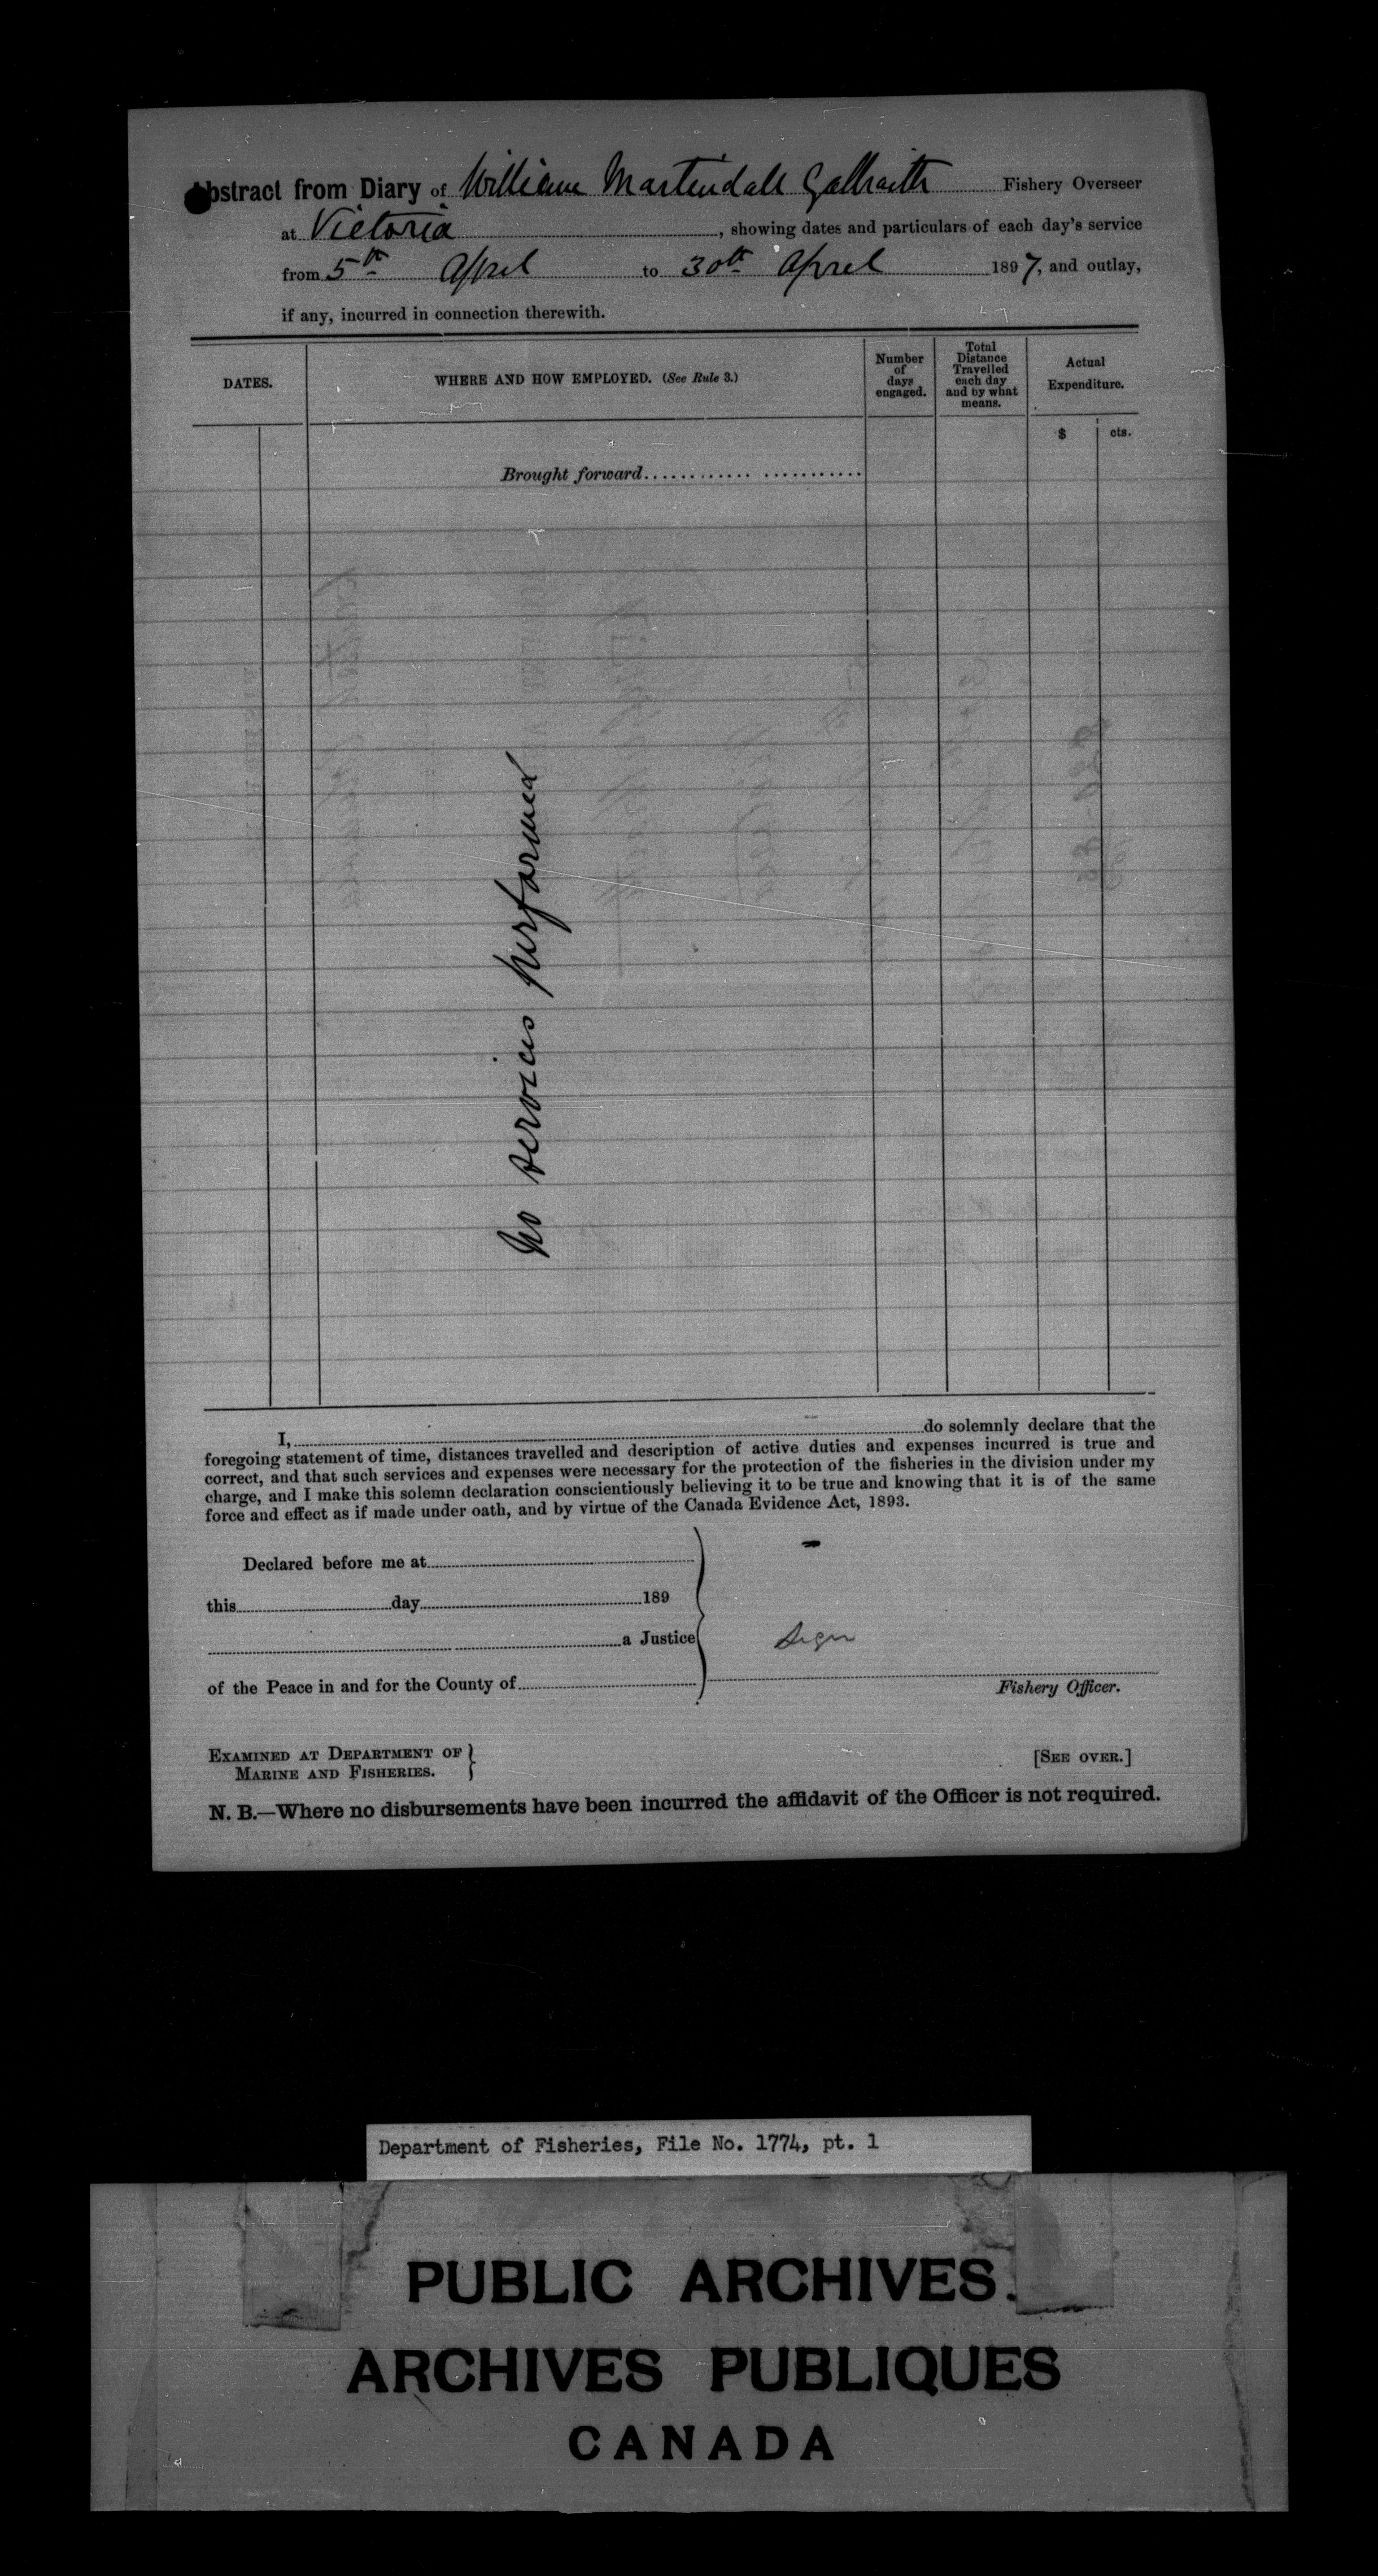 Abstract from Diary of William Martindale Galbraith Fishery Overseer
at Victoria, showing dates and particulars of each day's service
from 5th April to 30th April 1897, and outlay,
if any, incurred in connection therewith.
DATES.
WHERE AND HOW EMPLOYED. (See Rule 3.)
Number
of
days
engaged.
Total
Distance
Travelled
each day
and by what
means.
Actual
Expenditure.
$ cts.
Brought forward
No services performed
I, do solemnly declare that the
foregoing statement of time, distances travelled and description of active duties and expenses incurred is true and
correct, and that such services and expenses were necessary for the protection of the fisheries in the division under my
charge, and I make this solemn declaration conscientiously believing it to be true and knowing that it is of the same
force and effect as if made under oath, and by virtue of the Canada Evidence Act, 1893.
Declared before me at
this day 189
a Justice
Sign
of the Peace in and for the County of
Fishery Officer.
EXAMINED AT DEPARTMENT OF
MARINE AND FISHERIES.
[SEE OVER.]
N. B.—Where no disbursements have been incurred the affidavit of the Officer is not required.
Department of Fisheries, File No. 1774, pt. 1
PUBLIC ARCHIVES.
ARCHIVES PUBLIQUES
CANADA